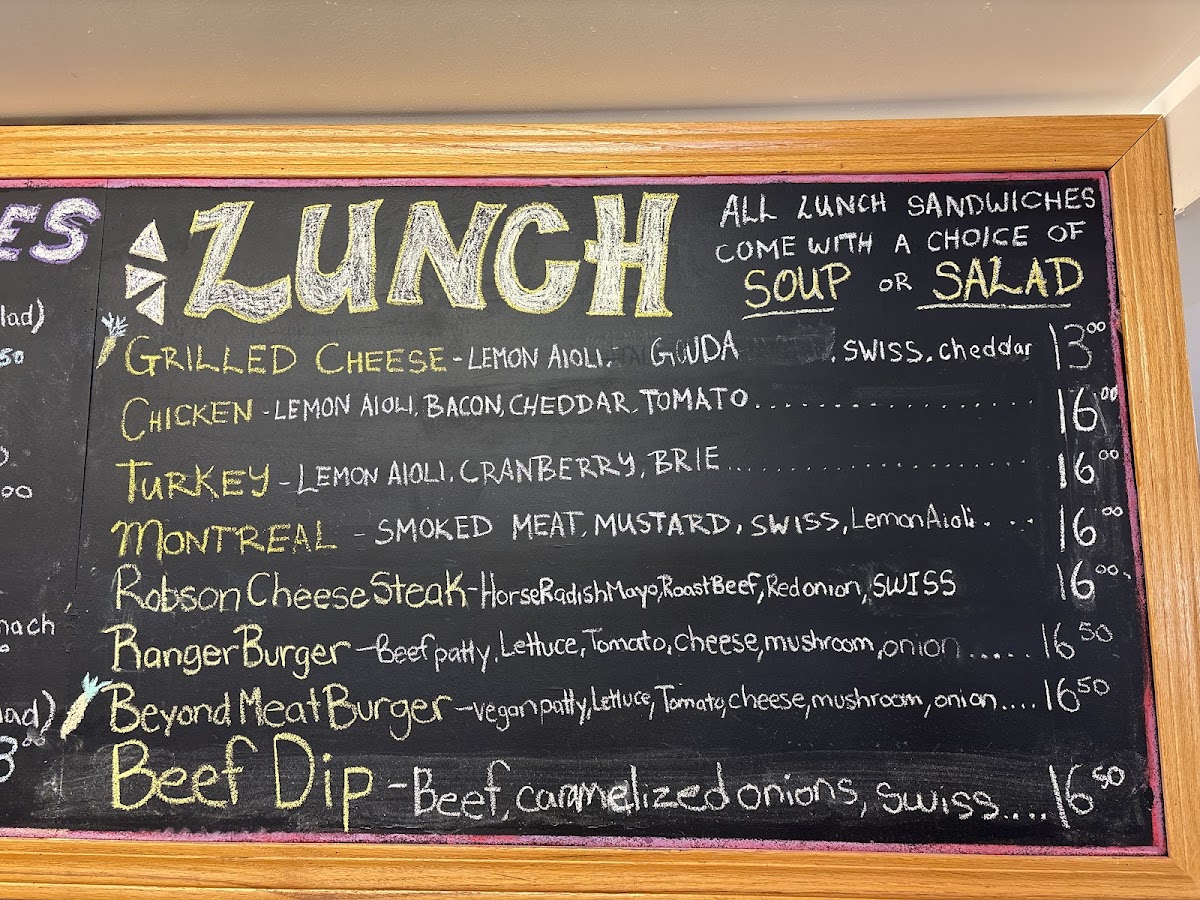 ES
LUNCH
ALL LUNCH SANDWICHES
COME WITH A CHOICE OF
SOUP OR SALAD
lad)
50
GRILLED CHEESE - LEMON AIOLI, GOUDA , SWISS, cheddar 13.00
CHICKEN - LEMON AIOLI, BACON, CHEDDAR, TOMATO 16.00
TURKEY - LEMON AIOLI, CRANBERRY, BRIE 16.00
00
MONTREAL - SMOKED MEAT, MUSTARD, SWISS, Lemon Aioli 16.00
Robson Cheese Steak - HorseRadish Mayo, Roast Beef, Red onion, SWISS 16.00
nach
Ranger Burger - Beef patty, Lettuce, Tomato, cheese, mushroom, onion ..... 16.50
Beyond Meat Burger - vegan patty, Lettuce, Tomato, cheese, mushroom, onion .... 16.50
lad)
8.00
Beef Dip - Beef, caramelized onions, swiss .... 16.50